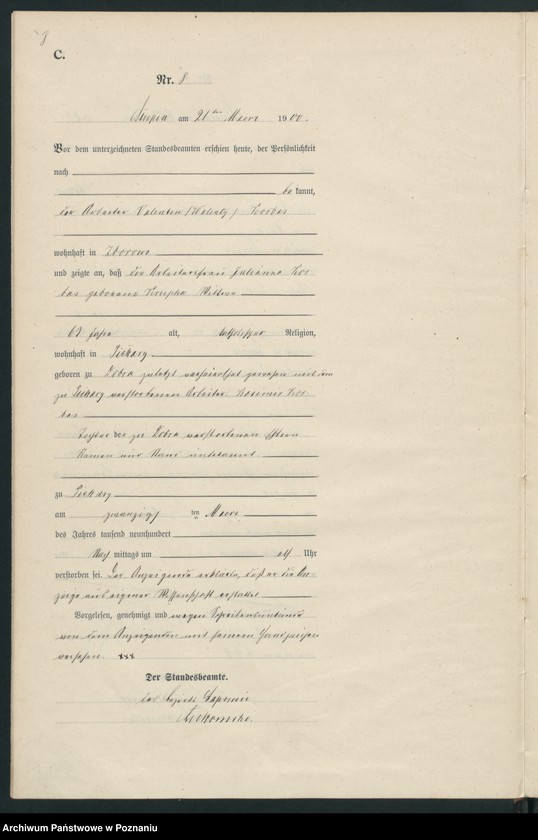 8
C.
Nr. 8
am 21ten März 1900.
Vor dem unterzeichneten Standesbeamten erschien heute, der Persönlichkeit
nach
bekannt,
der Arbeiter Valentin /Walenty/
wohnhaft in Zborowo
und zeigte an, daß die Arbeitersfrau Julianna
geborene Krupka Wittwe
61 Jahre alt, katholischer Religion,
wohnhaft in Piekary
geboren zu Dobra zuletzt verheirathet gewesen mit dem
zu Piekary verstorbenen Arbeiter
Tochter der zu Dobra verstorbenen Eltern
Namen und Stand unbekannt
zu Piekary
am zwanzigsten März
des Jahres tausend neunhundert
Nachmittags um elf Uhr
verstorben sei. Der Anzeigende erklärte, daß er die An-
zeige aus eigener Wissenschaft erstattet.
Vorgelesen, genehmigt und wegen Schreibensunkunde
von dem Anzeigenden mit seinem Handzeichen
versehen. xxx
Der Standesbeamte.
Archiwum Państwowe w Poznaniu